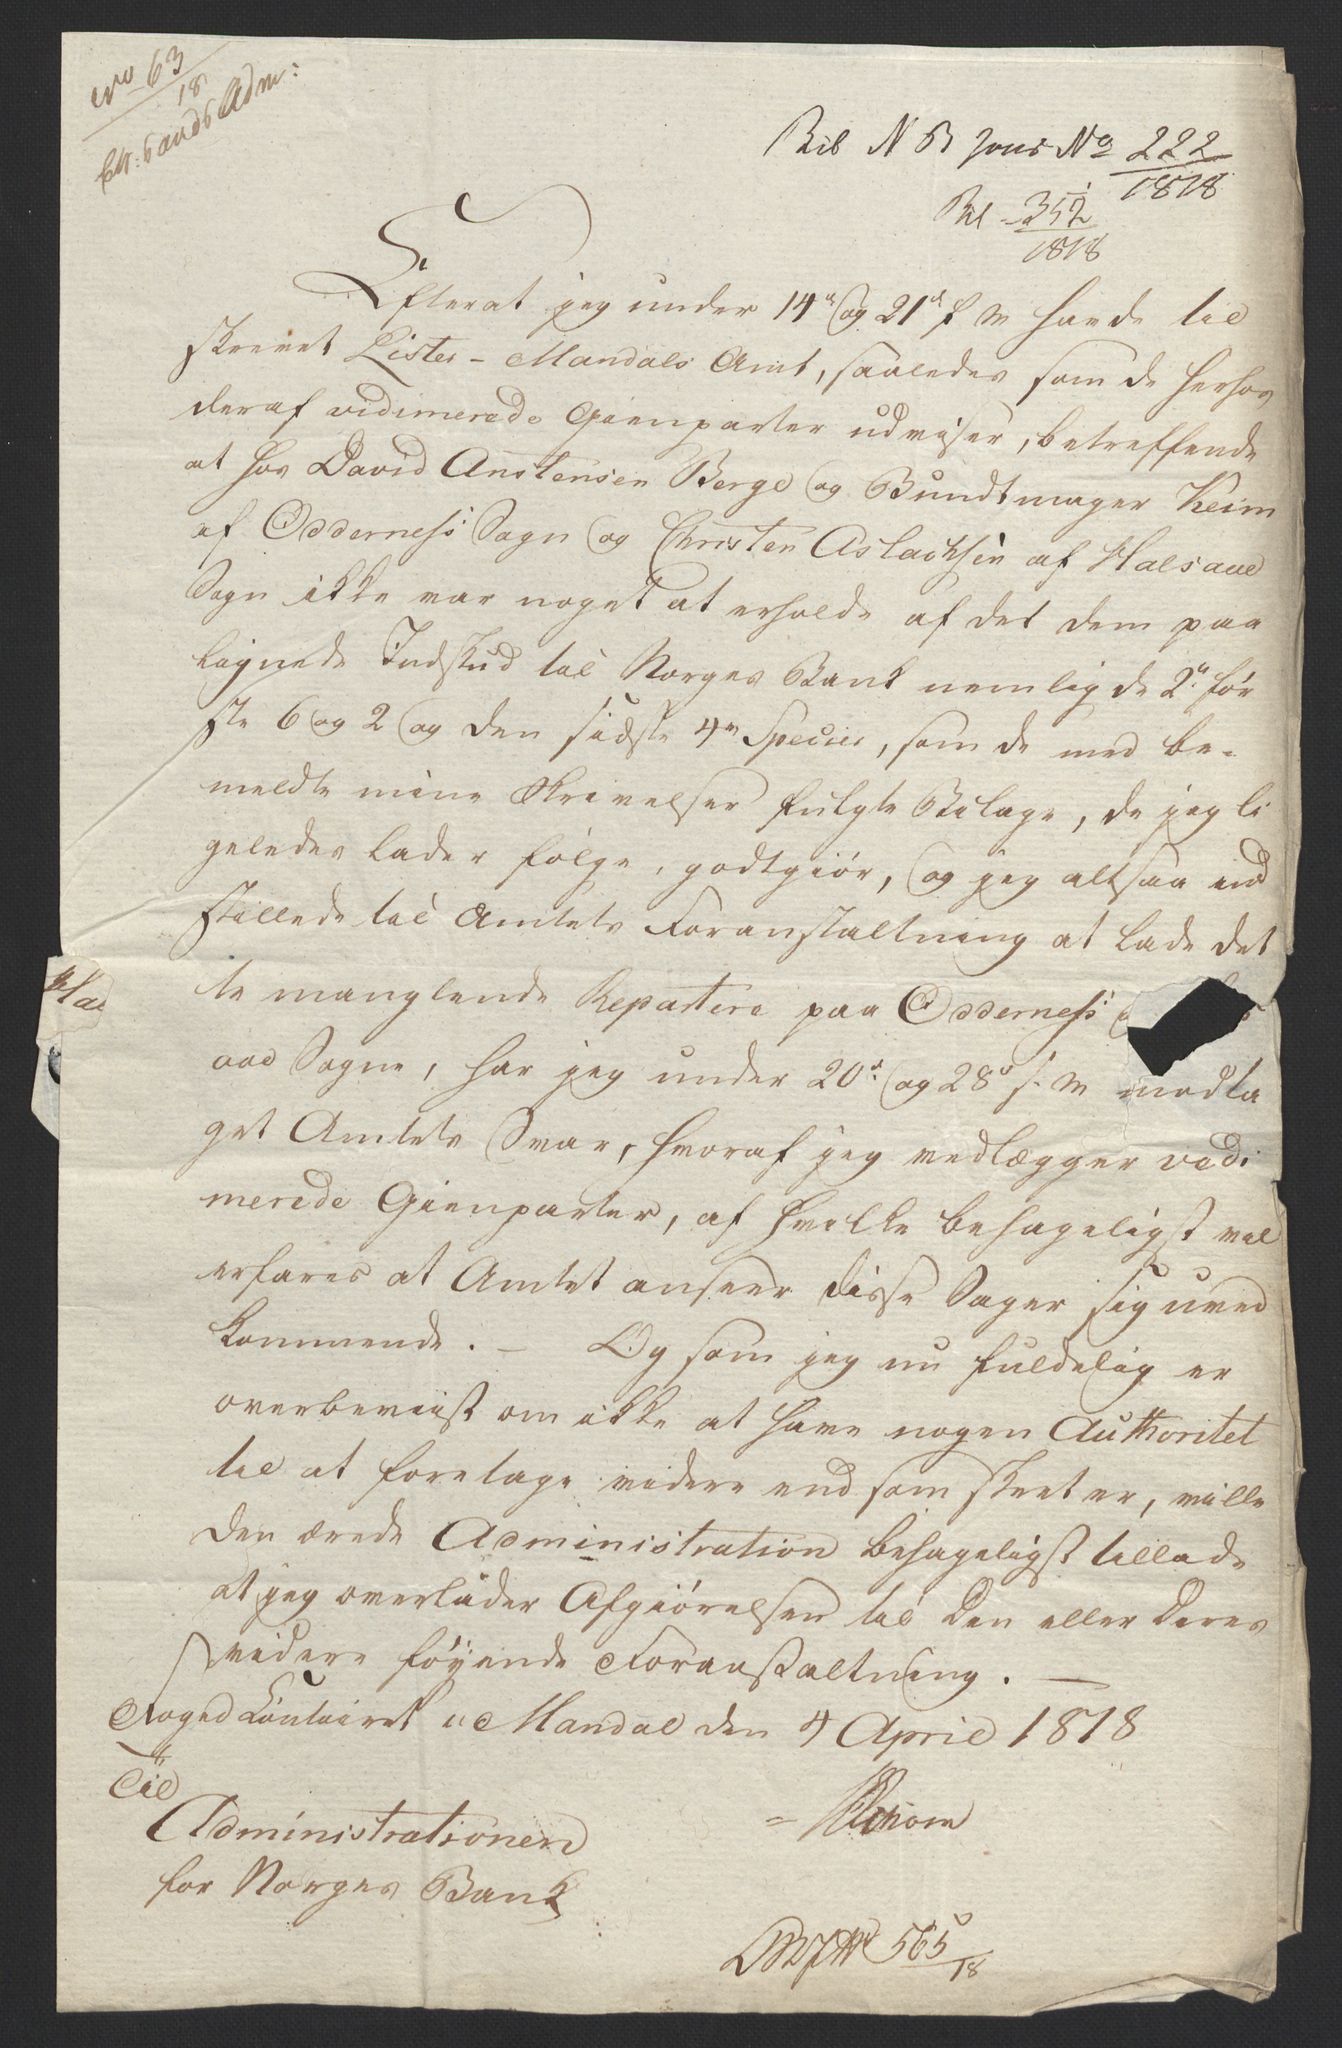 No 63
18
Chr:sands Adm:
Bil N B Jour No 222
1818
Bil 352
1818
Efterat jeg under 14d og 21d f M havde til
skrevet Lister-Mandals Amt, saaledes som de herhos
deraf vidimerede Gienparter udviser, betreffende
at hos David Anstensen Berge og Bundtmager Keim
af Oddernes Sogn og Christen Aslachsen af Halsaae
Sogn ikke var noget at erholde af det dem paa
lignede Indskud til Norges Bank nemlig de 2de før
ste 6 og 2 og den sidste 4re Species, som de med be-
meldte mine Skrivelser fulgte Bilage, de jeg li
geledes lader følge, godtgiør, og jeg altsaa ind
stillede til Amtets Foranstaltning at lade det
te manglende Repartere paa Oddernes
aae Sogne, har jeg under 20d og 28d s. M modta
get Amtets Svar, hvoraf jeg vedlægger vidi
merede Gienparter, af hvilke behageligst vil
erfares at Amtet anseer disse Sager sig uved
kommende. – Og som jeg nu fuldelig er
overbeviist om ikke at have nogen Authoritet
til at foretage videre end som skeet er, ville
den ærede Administration behageligst tillade
at jeg overlader Afgiørelsen til den eller deres
videre føyende Foranstaltning. —
Foged Contoiret i Mandal den 4 April 1818
Til
Administrationen
for Norges Bank
565
18